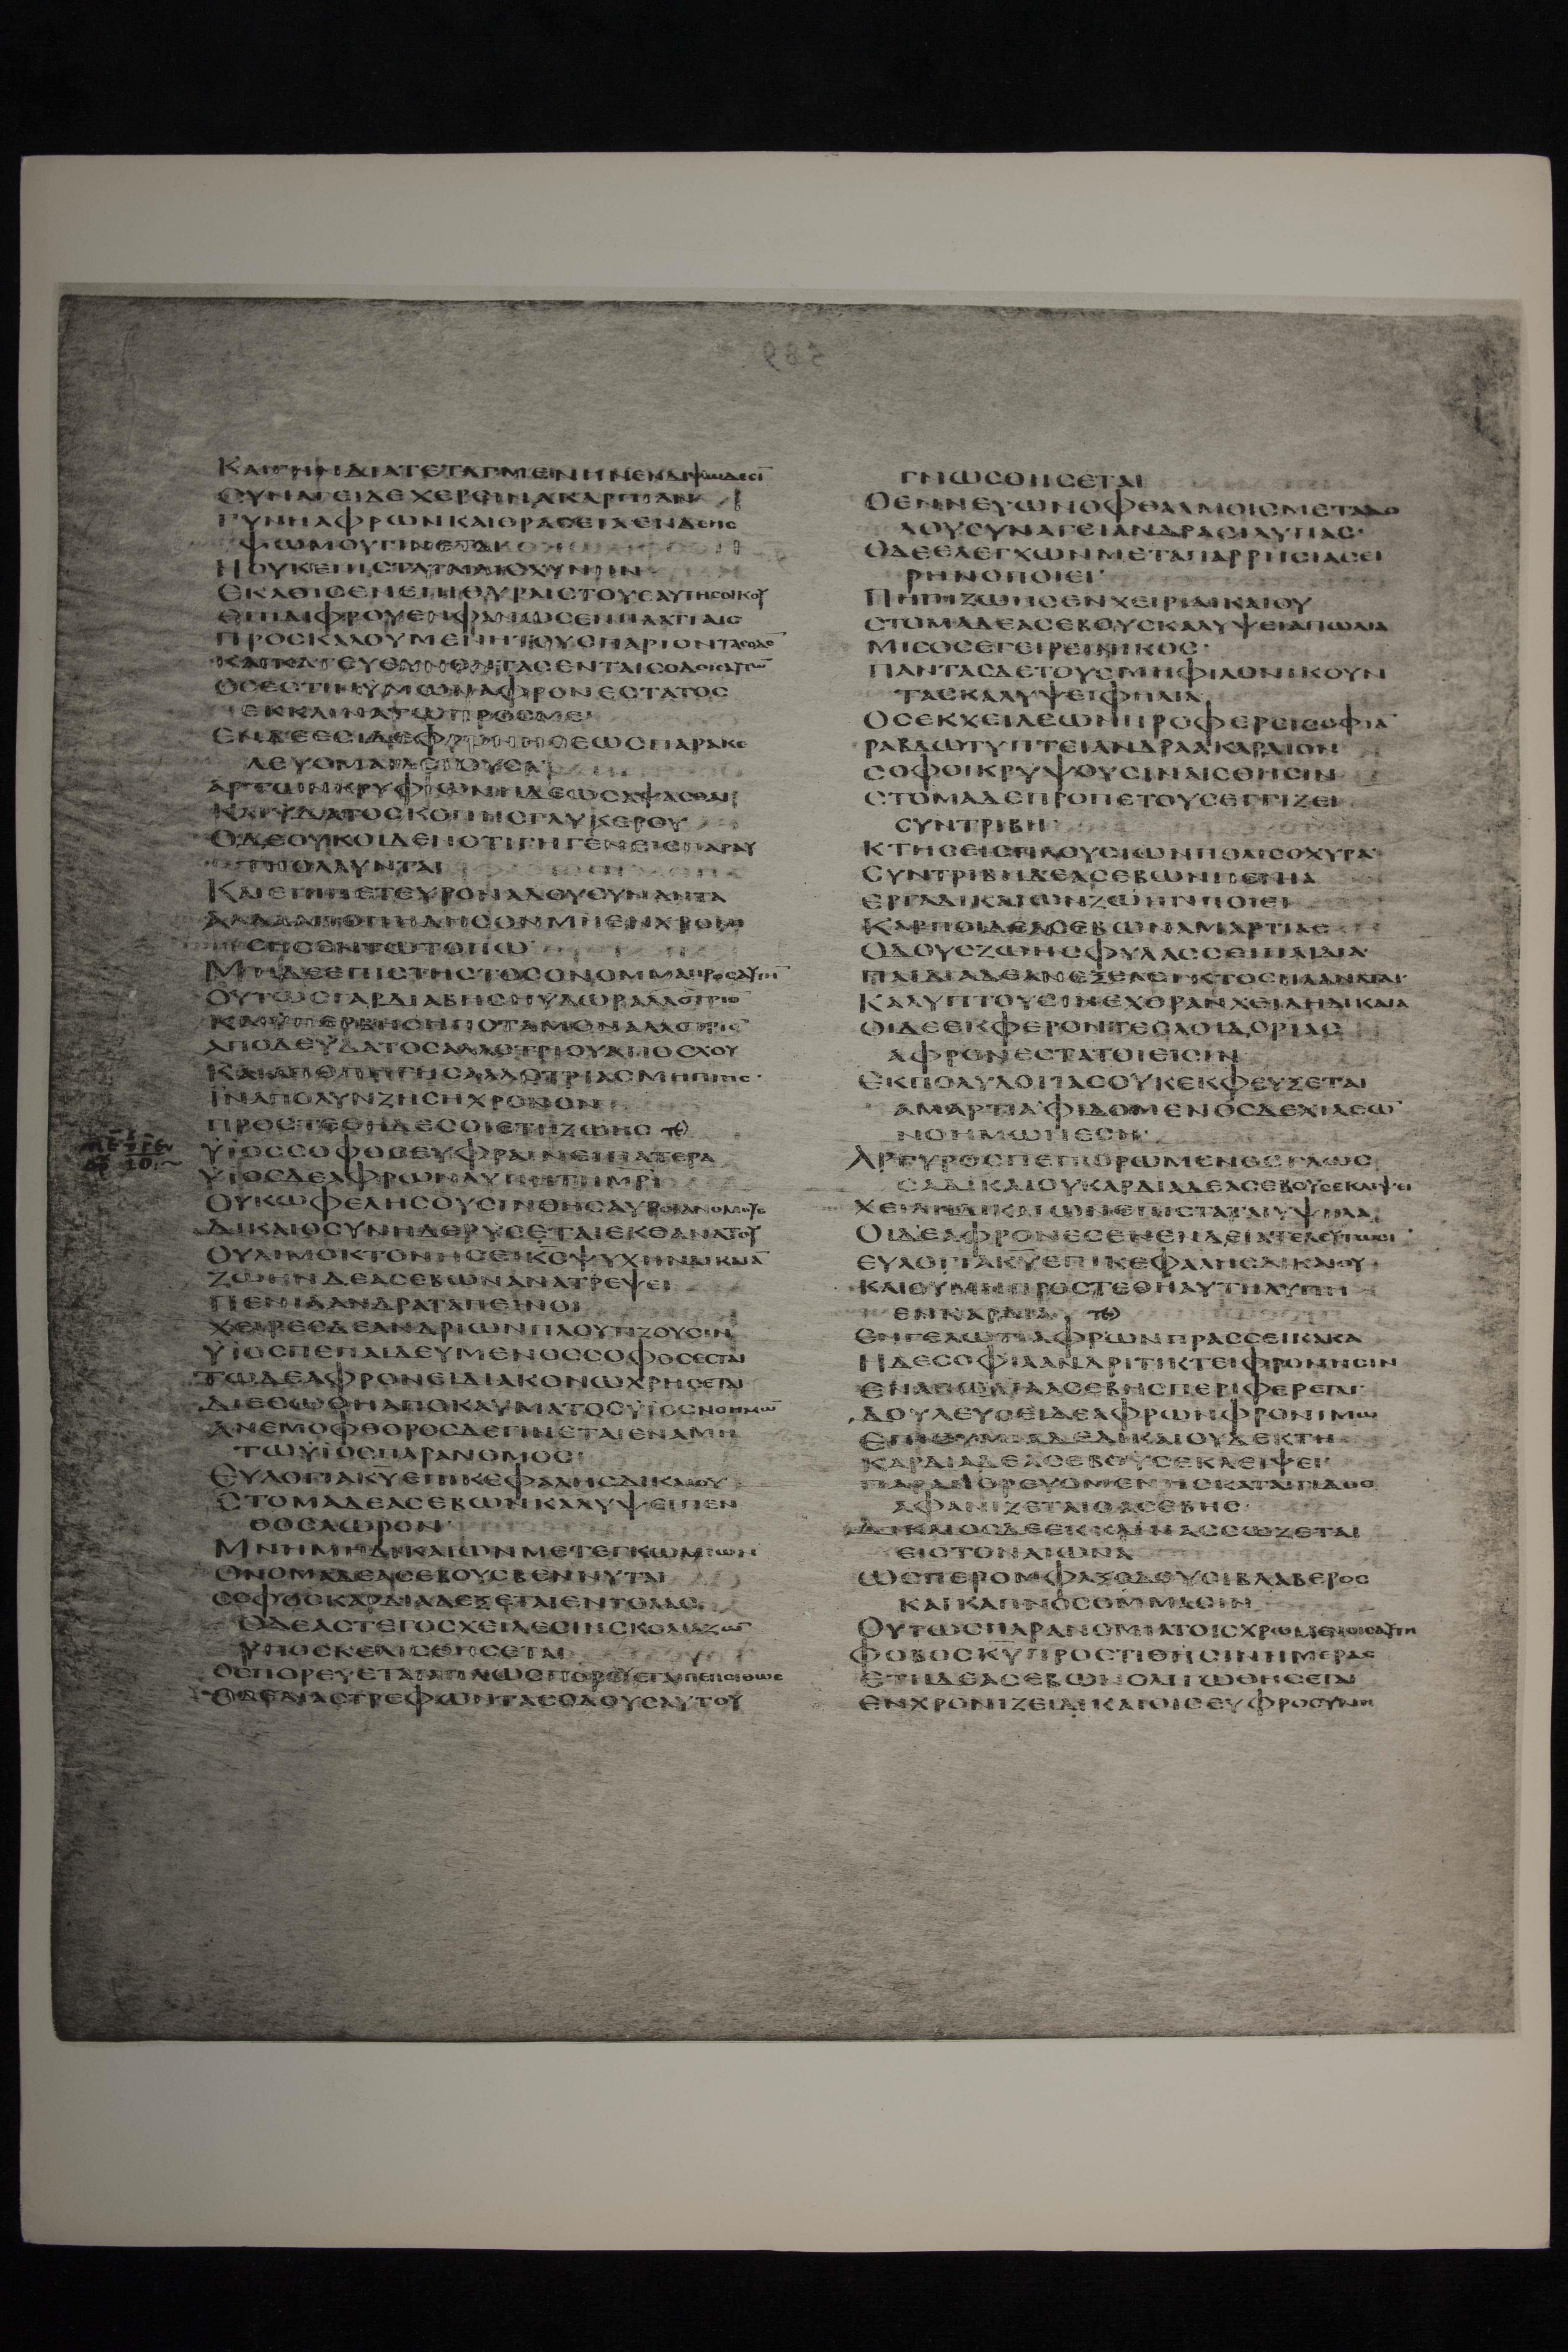 ΚΑΙ ΓΗΝ ΔΙΑΤΕΤΑΓΜΕΝΗΝ ΕΝ ΔΙΨΩΔΕCΙ̅
CΥΝΑΓΕΙ ΔΕ ΧΕΡCΙΝ ΑΚΑΡΠΙΑΝ
ΓΥΝΗ ΑΦΡΩΝ ΚΑΙ ΘΡΑCΕΙΑ ΕΝΔΕΗC
ΨΩΜΟΥ ΓΙΝΕΤΑΙ
Η ΟΥΚ ΕΠΙCΤΑΤΑΙ ΑΙCΧΥΝΗΝ
ΕΚΑΘΙCΕΝ ΕΠΙ ΘΥΡΑΙC ΤΟΥ ΕΑΥΤΗC ΟΙΚΟΥ
ΠΡΟCΚΑΛΟΥΜΕΝΗ ΤΟΥC ΠΑΡΙΟΝΤΑC ΟΔΟ̅
ΚΑΙ ΚΑΤΕΥΘΥΝΟΝΤΑC ΕΝ ΤΑΙC ΟΔΟΙC ΑΥΤΩ̅
ΟC ΕCΤΙΝ ΥΜΩΝ ΑΦΡΟΝΕCΤΑΤΟC
ΕΚΚΛΙΝΑΤΩ ΠΡΟC ΜΕ
ΕΝΔΕΕCΙ ΔΕ ΦΡΟΝΗCΕΩC ΠΑΡΑΚΕ
ΛΕΥΟΜΑΙ ΛΕΓΟΥCΑ
ΑΡΤΩΝ ΚΡΥΦΙΩΝ ΗΔΕΩC ΑΨΑCΘΑΙ
ΚΑΙ ΥΔΑΤΟC ΚΛΟΠΗC ΓΛΥΚΕΡΟΥ
Ο ΔΕ ΟΥΚ ΟΙΔΕΝ ΟΤΙ ΓΗΓΕΝΕΙC ΠΑΡ ΑΥ
ΤΗ ΟΛΛΥΝΤΑΙ
ΚΑΙ ΕΠΙ ΠΕΤΕΥΡΟΝ ΑΔΟΥ CΥΝΑΝΤΑ
ΑΛΛΑ ΑΠΟΠΗΔΗCΟΝ ΜΗ ΕΝΧΡΟΝΙ
CΗC ΕΝ ΤΩ ΤΟΠΩ
ΜΗΔΕ ΕΠΙCΤΗC ΤΟ CΟΝ ΟΜΜΑ ΠΡΟC ΑΥΤΗ̅
ΟΥΤΩC ΓΑΡ ΔΙΑΒΗCΗ ΥΔΩΡ ΑΛΛΟΤΡΙΟ̅
ΚΑΙ ΥΠΕΡΒΗCΗ ΠΟΤΑΜΟΝ ΑΛΛΟΤΡΙΟ̅
ΑΠΟ ΔΕ ΥΔΑΤΟC ΑΛΛΟΤΡΙΟΥ ΑΠΟCΧΟΥ
ΚΑΙ ΑΠΟ ΠΗΓΗC ΑΛΛΟΤΡΙΑC ΜΗ ΠΙΗC·
ΙΝΑ ΠΟΛΥΝ ΖΗCΗ ΧΡΟΝΟΝ
ΠΡΟCΤΕΘΗ ΔΕ CΟΙ ΕΤΗ ΖΩΗC
ΥΙΟC CΟΦΟC ΕΥΦΡΑΙΝΕΙ ΠΑΤΕΡΑ
ΥΙΟC ΔΕ ΑΦΡΩΝ ΛΥΠΗ ΤΗ ΜΡΙ
ΟΥΚ ΩΦΕΛΗCΟΥCΙΝ ΘΗCΑΥΡΟΙ ΑΝΟΜΟΥC
ΔΙΚΑΙΟCΥΝΗ ΔΕ ΡΥCΕΤΑΙ ΕΚ ΘΑΝΑΤΟΥ
ΟΥ ΛΙΜΟΚΤΟΝΗCΕΙ ΚC ΨΥΧΗΝ ΔΙΚΑΙΑ̅
ΖΩΗΝ ΔΕ ΑCΕΒΩΝ ΑΝΑΤΡΕΨΕΙ
ΠΕΝΙΑ ΑΝΔΡΑ ΤΑΠΕΙΝΟΙ
ΧΕΙΡΕC ΔΕ ΑΝΔΡΙΩΝ ΠΛΟΥΤΙΖΟΥCΙΝ
ΥΙΟC ΠΕΠΑΙΔΕΥΜΕΝΟC CΟΦΟC ΕCΤΑΙ
ΤΩ ΔΕ ΑΦΡΟΝΕΙ ΔΙΑΚΟΝΩ ΧΡΗCΕΤΑΙ
ΔΙΕCΩΘΗ ΑΠΟ ΚΑΥΜΑΤΟC ΥΙΟC ΝΟΗΜΩ̅
ΑΝΕΜΟΦΘΟΡΟC ΔΕ ΓΙΝΕΤΑΙ ΕΝ ΑΜΗ
ΤΩ ΥΙΟC ΠΑΡΑΝΟΜΟC
ΕΥΛΟΓΙΑ ΚΥ ΕΠΙ ΚΕΦΑΛΗC ΔΙΚΑΙΟΥ
CΤΟΜΑ ΔΕ ΑCΕΒΩΝ ΚΑΛΥΨΕΙ ΠΕΝ
ΘΟC ΑΩΡΟΝ
ΜΝΗΜΗ ΔΙΚΑΙΩΝ ΜΕΤ ΕΓΚΩΜΙΩΝ
ΟΝΟΜΑ ΔΕ ΑCΕΒΟΥC CΒΕΝΝΥΤΑΙ
CΟΦΟC ΚΑΡΔΙΑ ΔΕΞΕΤΑΙ ΕΝΤΟΛΑC
Ο ΔΕ ΑCΤΕΓΟC ΧΕΙΛΕCΙΝ CΚΟΛΙΑΖΩ̅
ΥΠΟCΚΕΛΙCΘΗCΕΤΑΙ
ΟC ΠΟΡΕΥΕΤΑΙ ΑΠΛΩC ΠΟΡΕΥΕΤΑΙ ΠΕΠΟΙΘΩC
Ο ΔΕ ΔΙΑCΤΡΕΦΩΝ ΤΑC ΟΔΟΥC ΑΥΤΟΥ
ΓΝΩCΘΗCΕΤΑΙ
Ο ΕΝΝΕΥΩΝ ΟΦΘΑΛΜΟΙC ΜΕΤΑ ΔΟ
ΛΟΥ CΥΝΑΓΕΙ ΑΝΔΡΑCΙ ΛΥΠΑC·
Ο ΔΕ ΕΛΕΓΧΩΝ ΜΕΤΑ ΠΑΡΡΗCΙΑC ΕΙ
ΡΗΝΟΠΟΙΕΙ·
ΠΗΓΗ ΖΩΗC ΕΝ ΧΕΙΡΙ ΔΙΚΑΙΟΥ
CΤΟΜΑ ΔΕ ΑCΕΒΟΥC ΚΑΛΥΨΕΙ ΑΠΩΛΙΑ
ΜΙCΟC ΕΓΕΙΡΕΙ ΝΙΚΟC·
ΠΑΝΤΑC ΔΕ ΤΟΥC ΜΗ ΦΙΛΟΝΙΚΟΥΝ
ΤΑC ΚΑΛΥΨΕΙ ΦΙΛΙΑ
ΟC ΕΚ ΧΕΙΛΕΩΝ ΠΡΟΦΕΡΕΙ CΟΦΙΑ̅
ΡΑΒΔΩ ΤΥΠΤΕΙ ΑΝΔΡΑ ΑΚΑΡΔΙΟΝ
CΟΦΟΙ ΚΡΥΨΟΥCΙΝ ΑΙCΘΗCΙΝ
CΤΟΜΑ ΔΕ ΠΡΟΠΕΤΟΥC ΕΓΓΙΖΕΙ
CΥΝΤΡΙΒΗ
ΚΤΗCΕΙC ΠΛΟΥCΙΩΝ ΠΟΛΙC ΟΧΥΡΑ
CΥΝΤΡΙΒΗ ΔΕ ΑCΕΒΩΝ ΠΕΝΙΑ
ΕΡΓΑ ΔΙΚΑΙΩΝ ΖΩΗΝ ΠΟΙΕΙ
ΚΑΡΠΟΙ ΔΕ ΑCΕΒΩΝ ΑΜΑΡΤΙΑC
ΟΔΟΥC ΖΩΗC ΦΥΛΑCCΕΙ ΠΑΙΔΙΑ
ΠΑΙΔΙΑ ΔΕ ΑΝΕΞΕΛΕΓΚΤΟC ΠΛΑΝΑΤΑΙ·
ΚΑΛΥΠΤΟΥCΙΝ ΕΧΘΡΑΝ ΧΕΙΛΗ ΔΙΚΑΙΑ
ΟΙ ΔΕ ΕΚΦΕΡΟΝΤΕC ΛΟΙΔΟΡΙΑC
ΑΦΡΟΝΕCΤΑΤΟΙ ΕΙCΙΝ
ΕΚ ΠΟΛΥΛΟΓΙΑC ΟΥΚ ΕΚΦΕΥΞΕΤΑΙ
ΑΜΑΡΤΙΑ ΦΙΔΟΜΕΝΟC ΔΕ ΧΙΛΕΩ̅
ΝΟΗΜΩΝ ΕCΗ
ΑΡΓΥΡΟC ΠΕΠΥΡΩΜΕΝΟC ΓΛΩC
CΑ ΔΙΚΑΙΟΥ ΚΑΡΔΙΑ ΔΕ ΑCΕΒΟΥC ΕΚΛΙΨΕΙ
ΧΕΙΛΗ ΔΙΚΑΙΩΝ ΕΠΙCΤΑΤΑΙ ΥΨΗΛΑ
ΟΙ ΔΕ ΑΦΡΟΝΕC ΕΝ ΕΝΔΕΙΑ ΤΕΛΕΥΤΩCΙ
ΕΥΛΟΓΙΑ ΚΥ ΕΠΙ ΚΕΦΑΛΗC ΔΙΚΑΙΟΥ
ΚΑΙ ΟΥ ΜΗ ΠΡΟCΤΕΘΗ ΑΥΤΗ ΛΥΠΗ
ΕΝ ΚΑΡΔΙΑ
ΕΝ ΓΕΛΩΤΙ ΑΦΡΩΝ ΠΡΑCCΕΙ ΚΑΚΑ
Η ΔΕ CΟΦΙΑ ΑΝΔΡΙ ΤΙΚΤΕΙ ΦΡΟΝΗCΙΝ
ΕΝ ΑΠΩΛΙΑ ΑCΕΒΗC ΠΕΡΙΦΕΡΕΤΑΙ·
ΔΟΥΛΕΥCΕΙ ΔΕ ΑΦΡΩΝ ΦΡΟΝΙΜΩ
ΕΠΙΘΥΜΙΑ ΔΕ ΔΙΚΑΙΟΥ ΔΕΚΤΗ
ΚΑΡΔΙΑ ΔΕ ΑCΕΒΟΥC ΕΚΛΕΙΨΕΙ
ΠΑΡΑΠΟΡΕΥΟΜΕΝΗC ΚΑΤΑΙΓΙΔΟC
ΑΦΑΝΙΖΕΤΑΙ Ο ΑCΕΒΗC
ΔΙΚΑΙΟC ΔΕ ΕΚΚΛΙΝΑC CΩΖΕΤΑΙ
ΕΙC ΤΟΝ ΑΙΩΝΑ
ΩCΠΕΡ ΟΜΦΑΞ ΟΔΟΥCΙ ΒΛΑΒΕΡΟC
ΚΑΙ ΚΑΠΝΟC ΟΜΜΑCΙΝ
ΟΥΤΩC ΠΑΡΑΝΟΜΙΑ ΤΟΙC ΧΡΩΜΕΝΟΙC ΑΥΤΗ
ΦΟΒΟC ΚΥ ΠΡΟCΤΙΘΗCΙΝ ΗΜΕΡΑC
ΕΤΗ ΔΕ ΑCΕΒΩΝ ΟΛΙΓΩΘΗCΕΤΑΙ
ΕΝΧΡΟΝΙΖΕΙ ΔΙΚΑΙΟΙC ΕΥΦΡΟCΥΝΗ